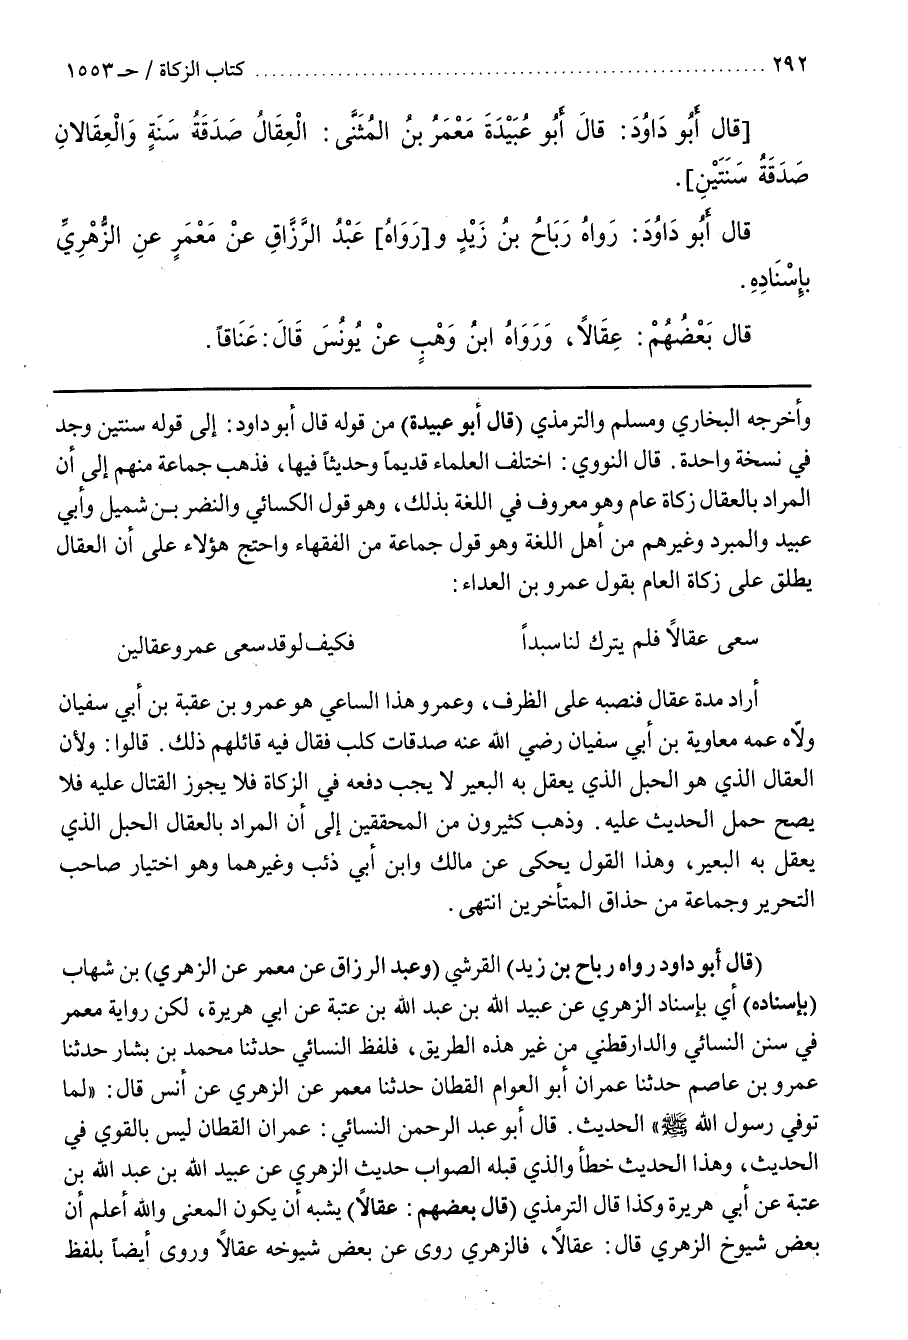 ٢٩٢ ................................................................ كتاب الزكاة / حـ ١٥٥٣
[قال أَبُو دَاوُدَ: قالَ أَبُو عُبَيْدَةَ مَعْمَرُ بنُ المُثَنَّى: الْعِقَالُ صَدَقَةُ سَنَةٍ وَالْعِقَالانِ
صَدَقَةُ سَنَتَيْنِ].
قال أَبُو دَاوُدَ: رَواهُ رَبَاحُ بنُ زَيْدٍ و[رَوَاهُ] عَبْدُ الرَّزَّاقِ عنْ مَعْمَرٍ عنِ الزُّهْرِيِّ
بإِسْنَادِهِ.
قال بَعْضُهُمْ: عِقَالًا، وَرَوَاهُ ابنُ وَهْبٍ عنْ يُونُسَ قَالَ: عَنَاقاً.
وأخرجه البخاري ومسلم والترمذي (قال أبو عبيدة) من قوله قال أبو داود: إلى قوله سنتين وجد
في نسخة واحدة. قال النووي: اختلف العلماء قديماً وحديثاً فيها، فذهب جماعة منهم إلى أن
المراد بالعقال زكاة عام وهو معروف في اللغة بذلك، وهو قول الكسائي والنضر بـن شميل وأبي
عبيد والمبرد وغيرهم من أهل اللغة وهو قول جماعة من الفقهاء واحتج هؤلاء على أن العقال
يطلق على زكاة العام بقول عمرو بن العداء:
سعى عقالًا فلم يترك لنا سبداً فكيف لو قد سعى عمرو عقالين
أراد مدة عقال فنصبه على الظرف، وعمرو هذا الساعي هو عمرو بن عقبة بن أبي سفيان
ولاّه عمه معاوية بن أبي سفيان رضي الله عنه صدقات كلب فقال فيه قائلهم ذلك. قالوا: ولأن
العقال الذي هو الحبل الذي يعقل به البعير لا يجب دفعه في الزكاة فلا يجوز القتال عليه فلا
يصح حمل الحديث عليه. وذهب كثيرون من المحققين إلى أن المراد بالعقال الحبل الذي
يعقل به البعير، وهذا القول يحكى عن مالك وابن أبي ذئب وغيرهما وهو اختيار صاحب
التحرير وجماعة من حذاق المتأخرين انتهى.
(قال أبو داود رواه رباح بن زيد) القرشي (وعبد الرزاق عن معمر عن الزهري) بن شهاب
(بإسناده) أي بإسناد الزهري عن عبيد الله بن عبد الله بن عتبة عن ابي هريرة، لكن رواية معمر
في سنن النسائي والدارقطني من غير هذه الطريق، فلفظ النسائي حدثنا محمد بن بشار حدثنا
عمرو بن عاصم حدثنا عمران أبو العوام القطان حدثنا معمر عن الزهري عن أنس قال: «لما
توفي رسول الله ﷺ» الحديث. قال أبو عبد الرحمن النسائي: عمران القطان ليس بالقوي في
الحديث، وهذا الحديث خطأ والذي قبله الصواب حديث الزهري عن عبيد الله بن عبد الله بن
عتبة عن أبي هريرة وكذا قال الترمذي (قال بعضهم: عقالًا) يشبه أن يكون المعنى والله أعلم أن
بعض شيوخ الزهري قال: عقالًا، فالزهري روى عن بعض شيوخه عقالًا وروى أيضاً بلفظ